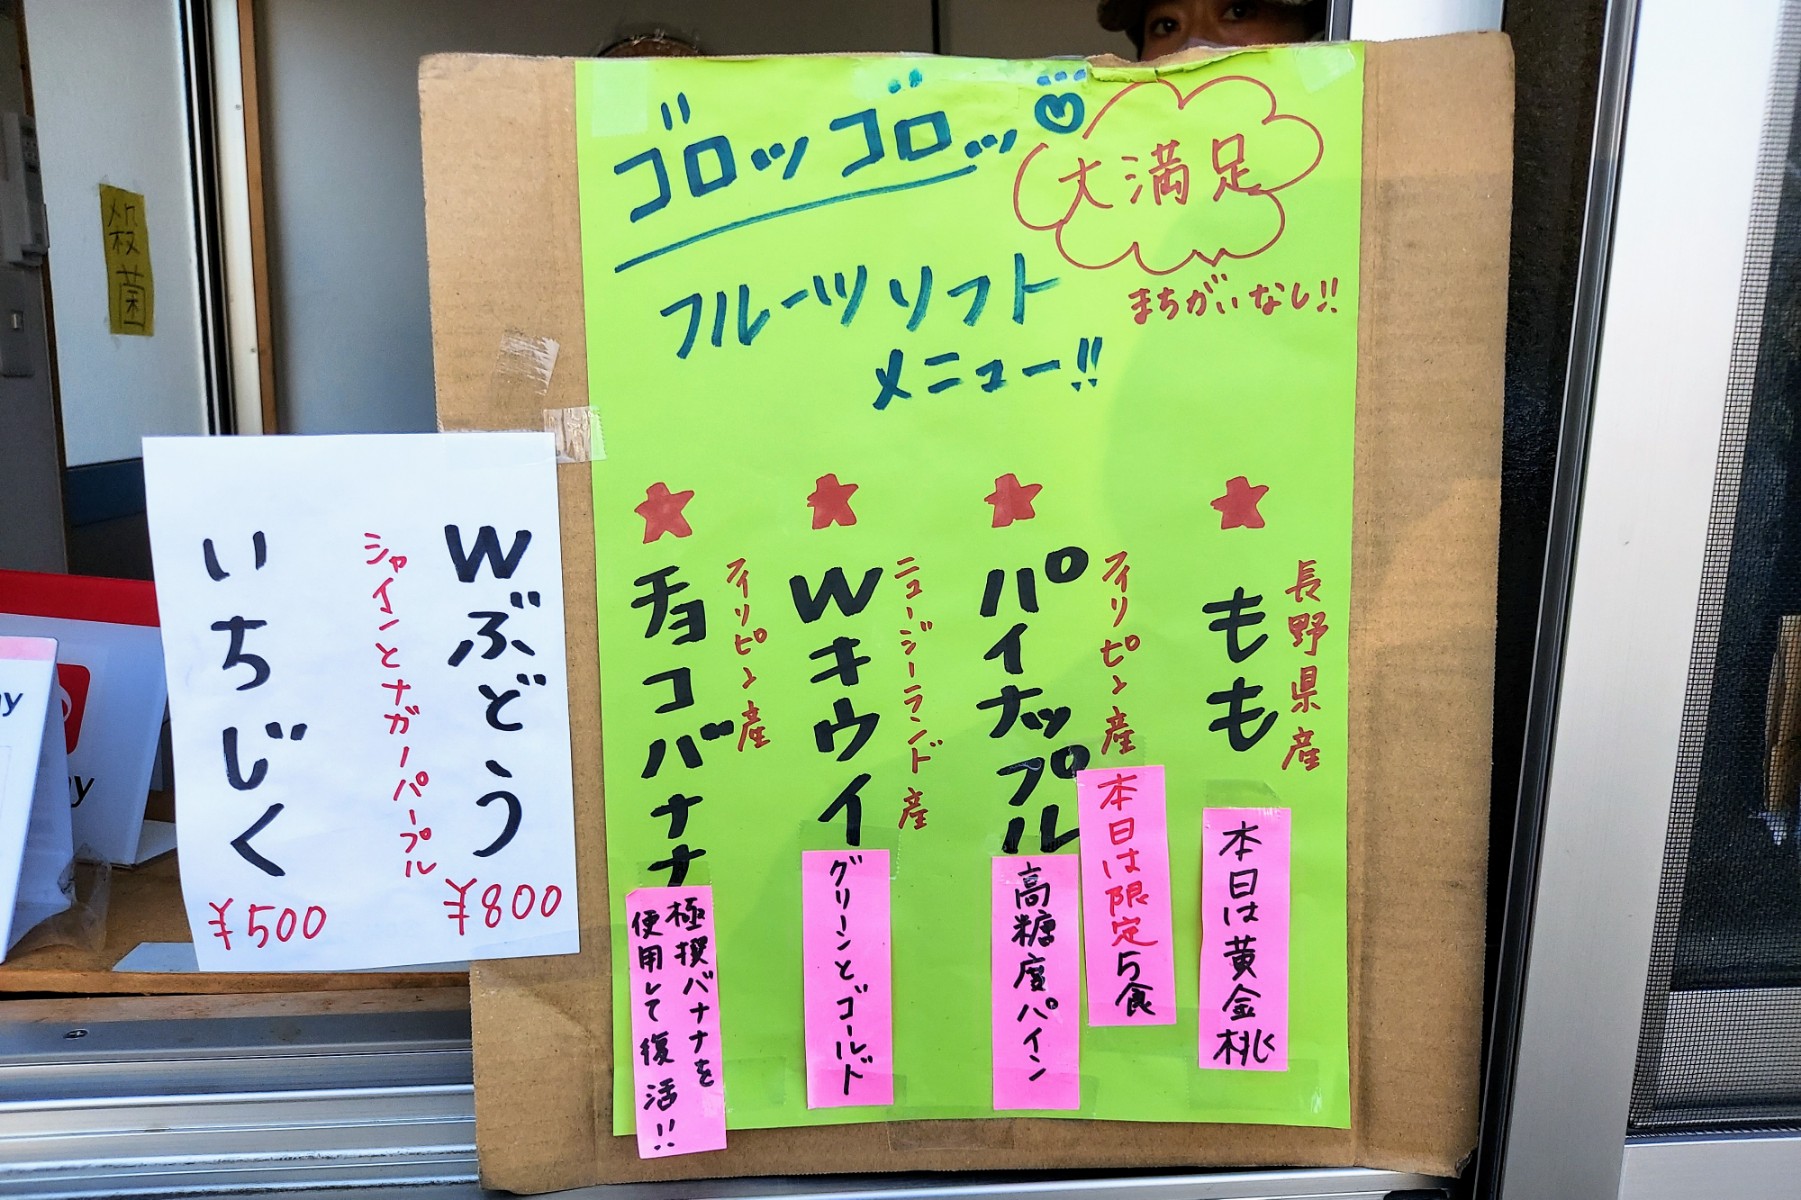 ゴロッゴロッ
大満足
まちがいなし!!
フルーツソフト
メニュー!!
長野県産
もも
本日は黄金桃
フィリピン産
パイナップル
本日は限定5食
高糖度パイン
ニュージーランド産
Wキウイ
グリーンとゴールド
フィリピン産
チョコバナナ
極撰バナナを
使用して復活!!
Wぶどう
¥800
シャインとナガノパープル
いちじく
¥500
殺菌
ay